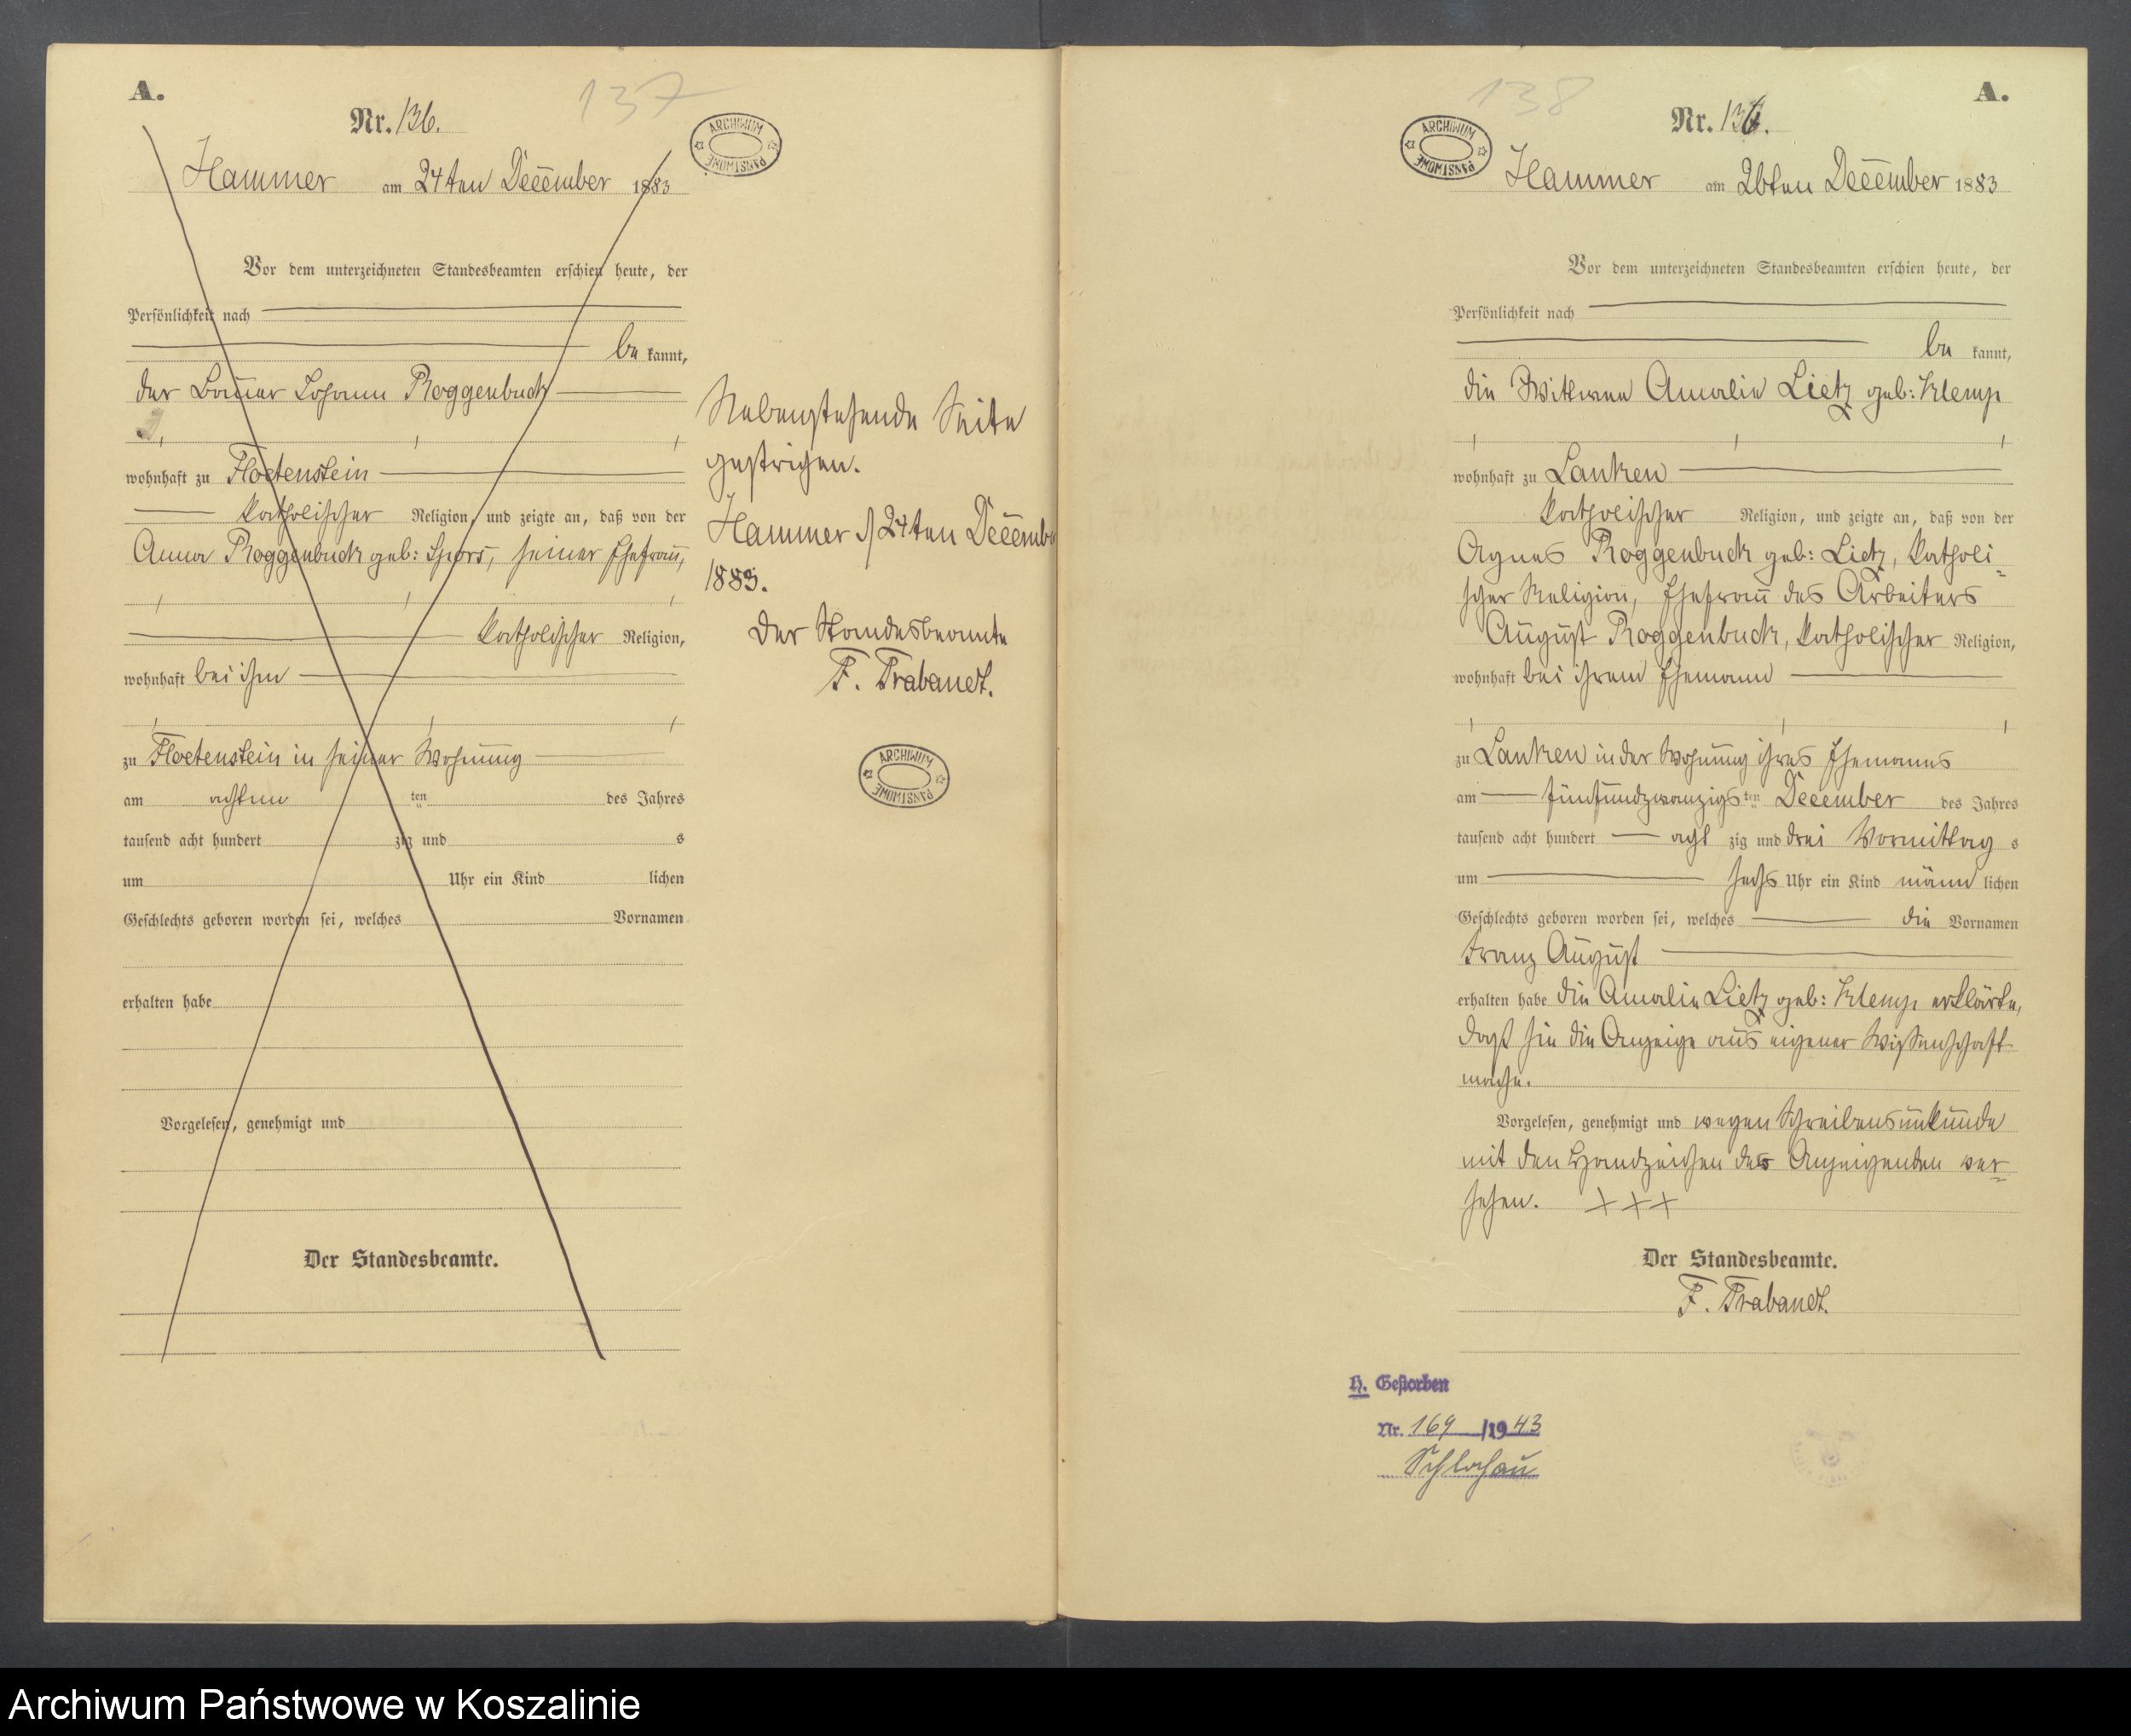 A.
137
Nr. 136.
Hammer am 24ten December 1883
ARCHIWUM PAŃSTWOWE
Vor dem unterzeichneten Standesbeamten erschien heute, der
Persönlichkeit nach
be kannt,
der Bauer Johann Roggenbuck
wohnhaft zu Floetenstein
katholischer Religion, und zeigte an, daß von der
Anna Roggenbuck geb: Spors, seiner Ehefrau,
katholischer Religion,
wohnhaft bei ihm
zu Floetenstein in seiner Wohnung
am achten ten des Jahres
tausend acht hundert zig und s
um Uhr ein Kind lichen
Geschlechts geboren worden sei, welches Vornamen
erhalten habe
Vorgelesen, genehmigt und
Der Standesbeamte.
Nebenstehende Seite
gestrichen.
Hammer d 24ten Decembe
1883.
Der Standesbeamte
F. Trabandt.
ARCHIWUM PAŃSTWOWE
138
A.
ARCHIWUM PAŃSTWOWE
Nr. 136.
Hammer am 26ten December 1883
Vor dem unterzeichneten Standesbeamten erschien heute, der
Persönlichkeit nach
be kannt,
die Wittwe Amalie Lietz geb: Klemp
wohnhaft zu Lanken
katholischer Religion, und zeigte an, daß von der
Agnes Roggenbuck geb: Lietz, katholi-
scher Religion, Ehefrau des Arbeiters
August Roggenbuck, katholischer Religion,
wohnhaft bei ihrem Ehemann
zu Lanken in der Wohnung ihres Ehemanns
am fünfundzwanzigs ten December des Jahres
tausend acht hundert acht zig und drei Vormittag s
um sechs Uhr ein Kind männ lichen
Geschlechts geboren worden sei, welches die Vornamen
Franz August
erhalten habe die Amalie Lietz geb: Klemp erklärte,
daß sie die Anzeige aus eigener Wissenschaft
mache.
Vorgelesen, genehmigt und wegen Schreibensunkunde
mit den Handzeichen des Anzeigenden ver-
sehen. +++
Der Standesbeamte.
F. Trabandt.
H. Gestorben
Nr. 169 /1943
Schlochau
Archiwum Państwowe w Koszalinie